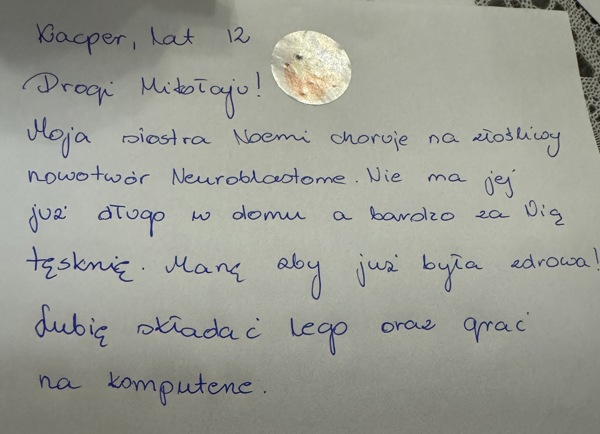 Kacper, lat 12
Drogi Mikołaju!
Moja siostra Noemi choruje na złośliwy
nowotwór Neuroblastome. Nie ma jej
już długo w domu a bardzo za Nią
tęsknię. Marzę aby już była zdrowa!
Lubię składać lego oraz grać
na komputerze.